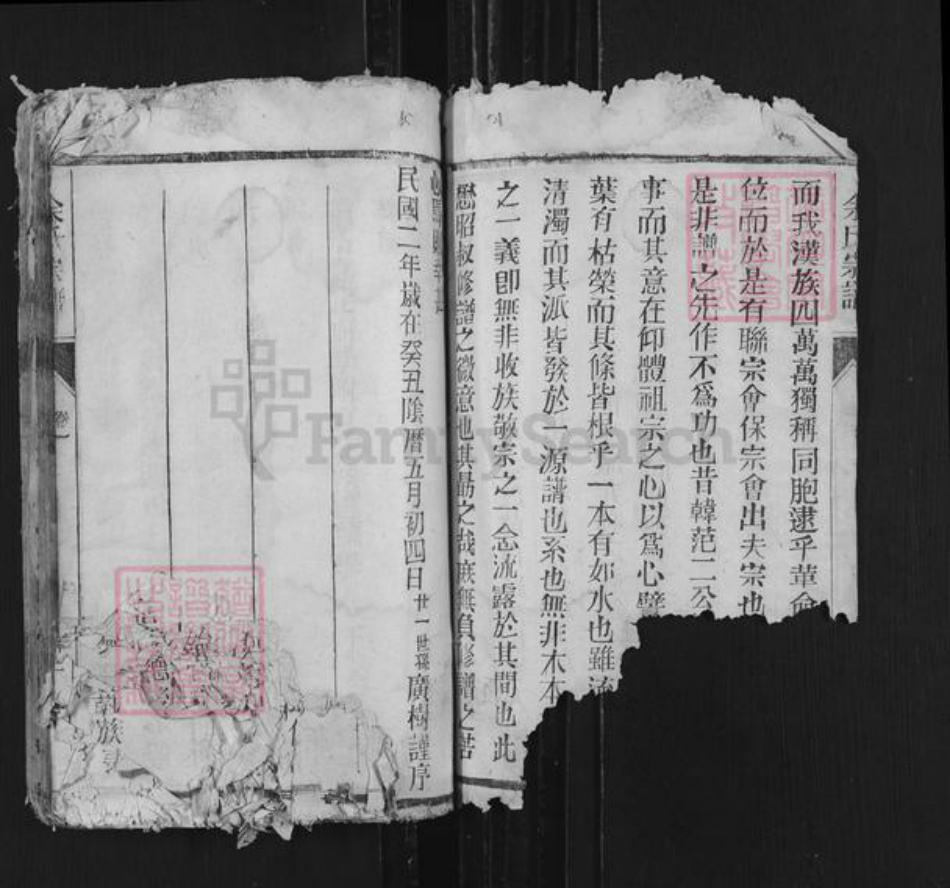 余氏宗譜
而我漢族四萬萬獨稱同胞逮乎革命
位而於是有聯宗會保宗會出夫宗也
是非譜之先作不為功也昔韓范二公
事而其意在仰體祖宗之心以為心譬
葉有枯榮而其條皆根乎一本有如水也雖流
清濁而其派皆發於一源譜也系也無非木本
之一義即無非收族敬宗之一念流露於其間也此
懋昭叔修譜之微意也其勗之哉庶無負修譜之苦
民國二年歲在癸丑陰曆五月初四日廿一世孫廣樹謹序
卷一
族
FamilySearch